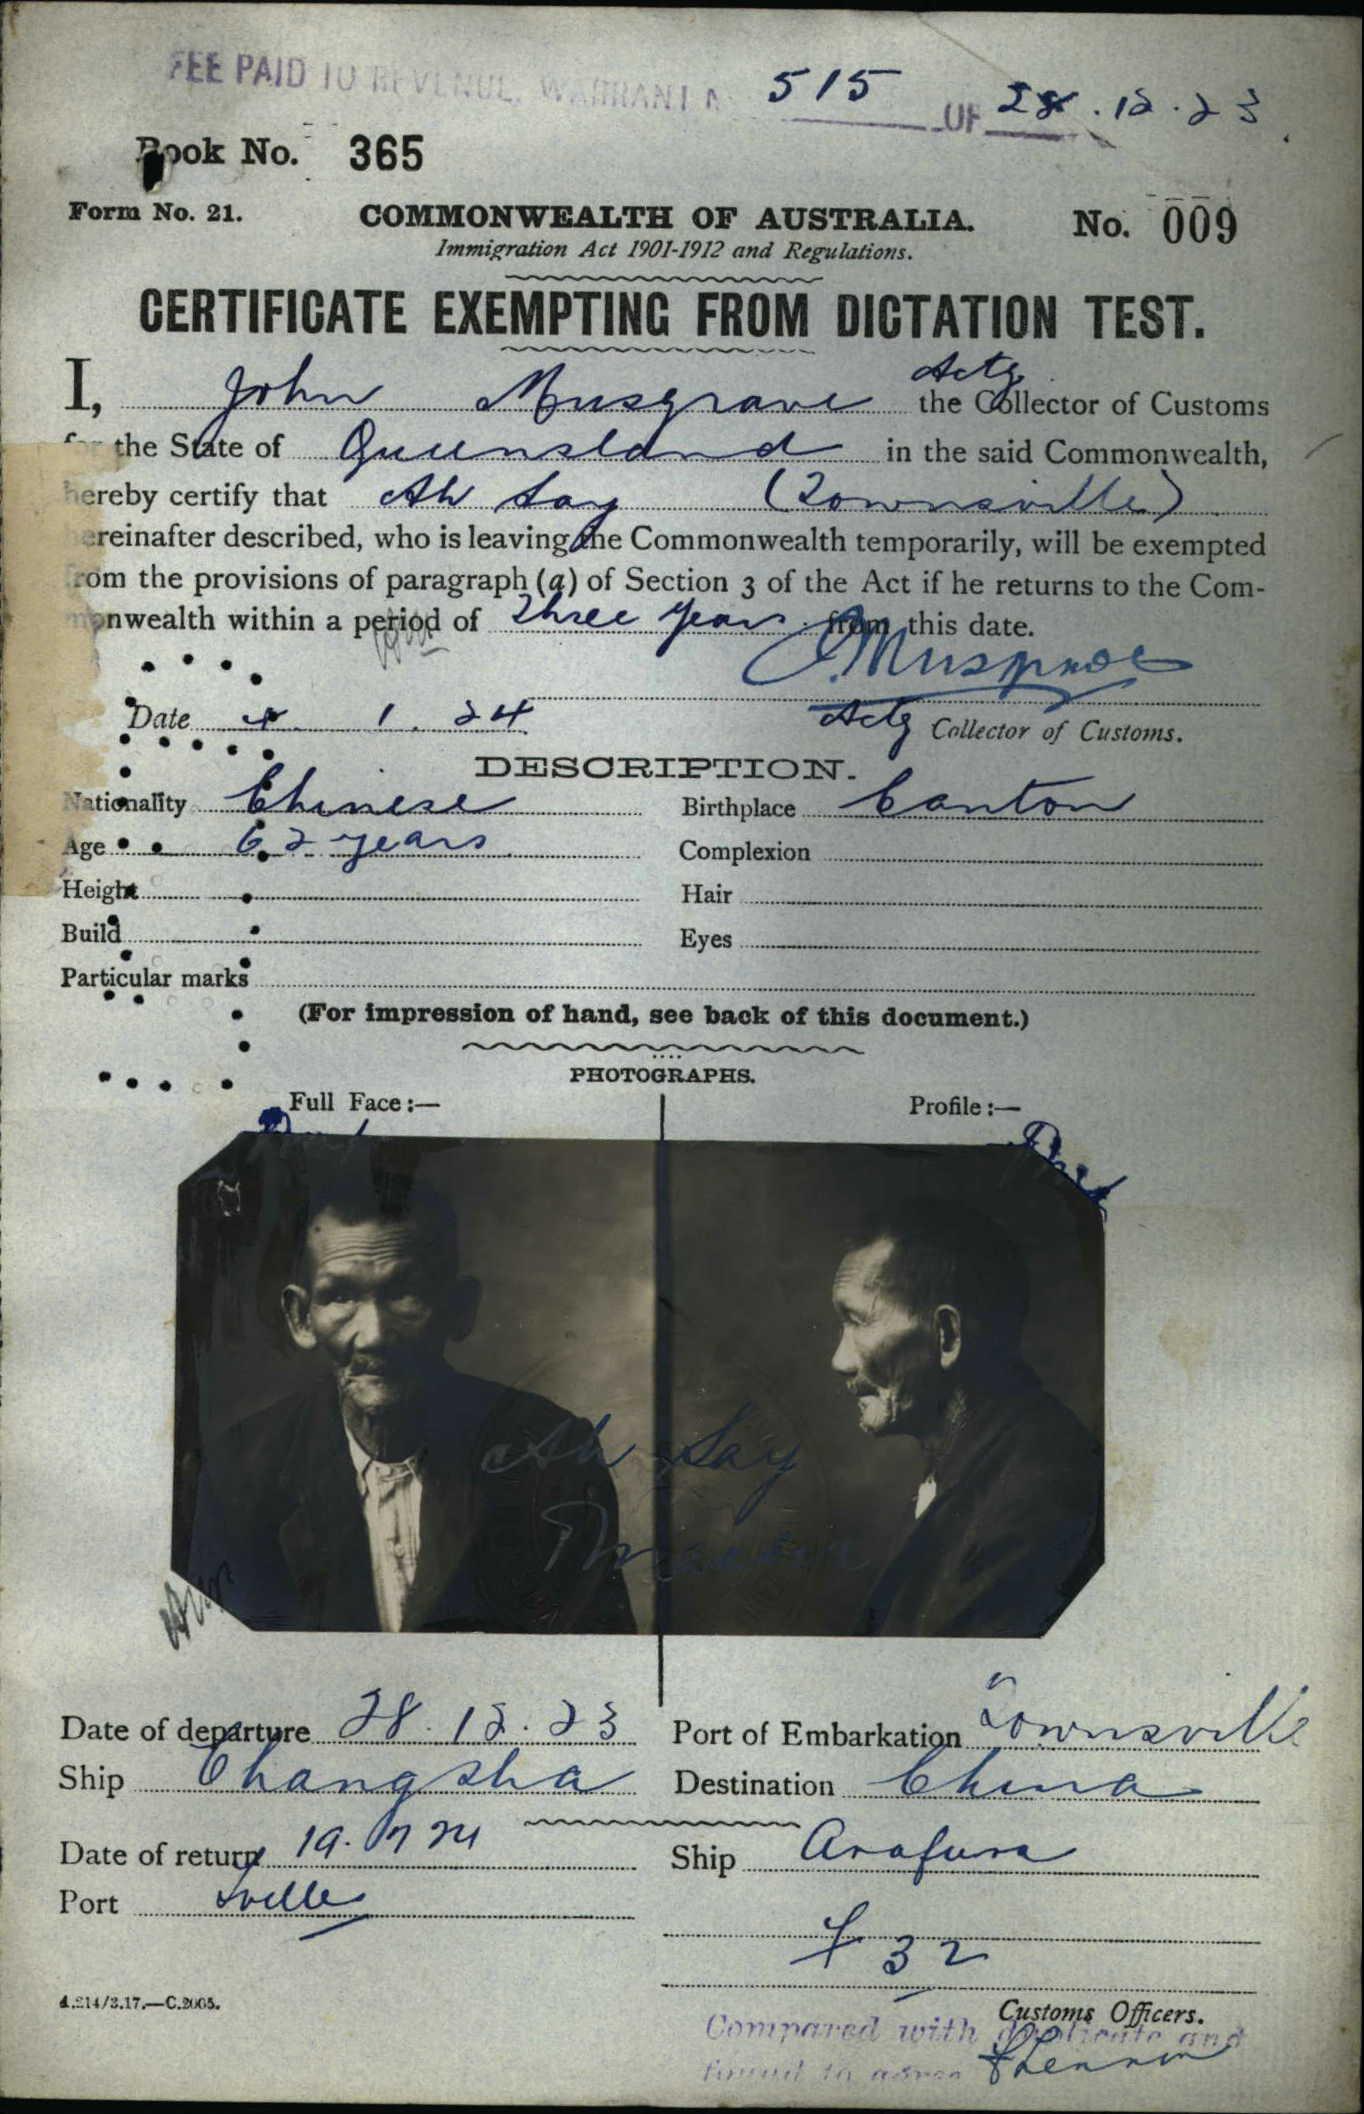 FEE PAID TO REVENUE, WARRANT N 515 OF 28.12.23
Book No. 365
Form No. 21. COMMONWEALTH OF AUSTRALIA. No. 009
Immigration Act 1901-1912 and Regulations.
CERTIFICATE EXEMPTING FROM DICTATION TEST.
I, John Musgrave Actg the Collector of Customs
for the State of Queensland in the said Commonwealth,
hereby certify that Ah Say (Townsville)
hereinafter described, who is leaving the Commonwealth temporarily, will be exempted
from the provisions of paragraph (a) of Section 3 of the Act if he returns to the Com-
monwealth within a period of Three years from this date.
J. Musgrave
Date 4. 1. 24 Actg Collector of Customs.
DESCRIPTION.
Nationality Chinese Birthplace Canton
Age 62 years Complexion
Height Hair
Build Eyes
Particular marks
(For impression of hand, see back of this document.)
PHOTOGRAPHS.
Full Face:— Profile:—
Ah Say
Date of departure 28.12.23 Port of Embarkation Townsville
Ship Changsha Destination China
Date of return 19.7 24 Ship Arafura
Port Tville
£32
A.214/3.17.—C.2005. Customs Officers.
Compared with duplicate and
found to agree